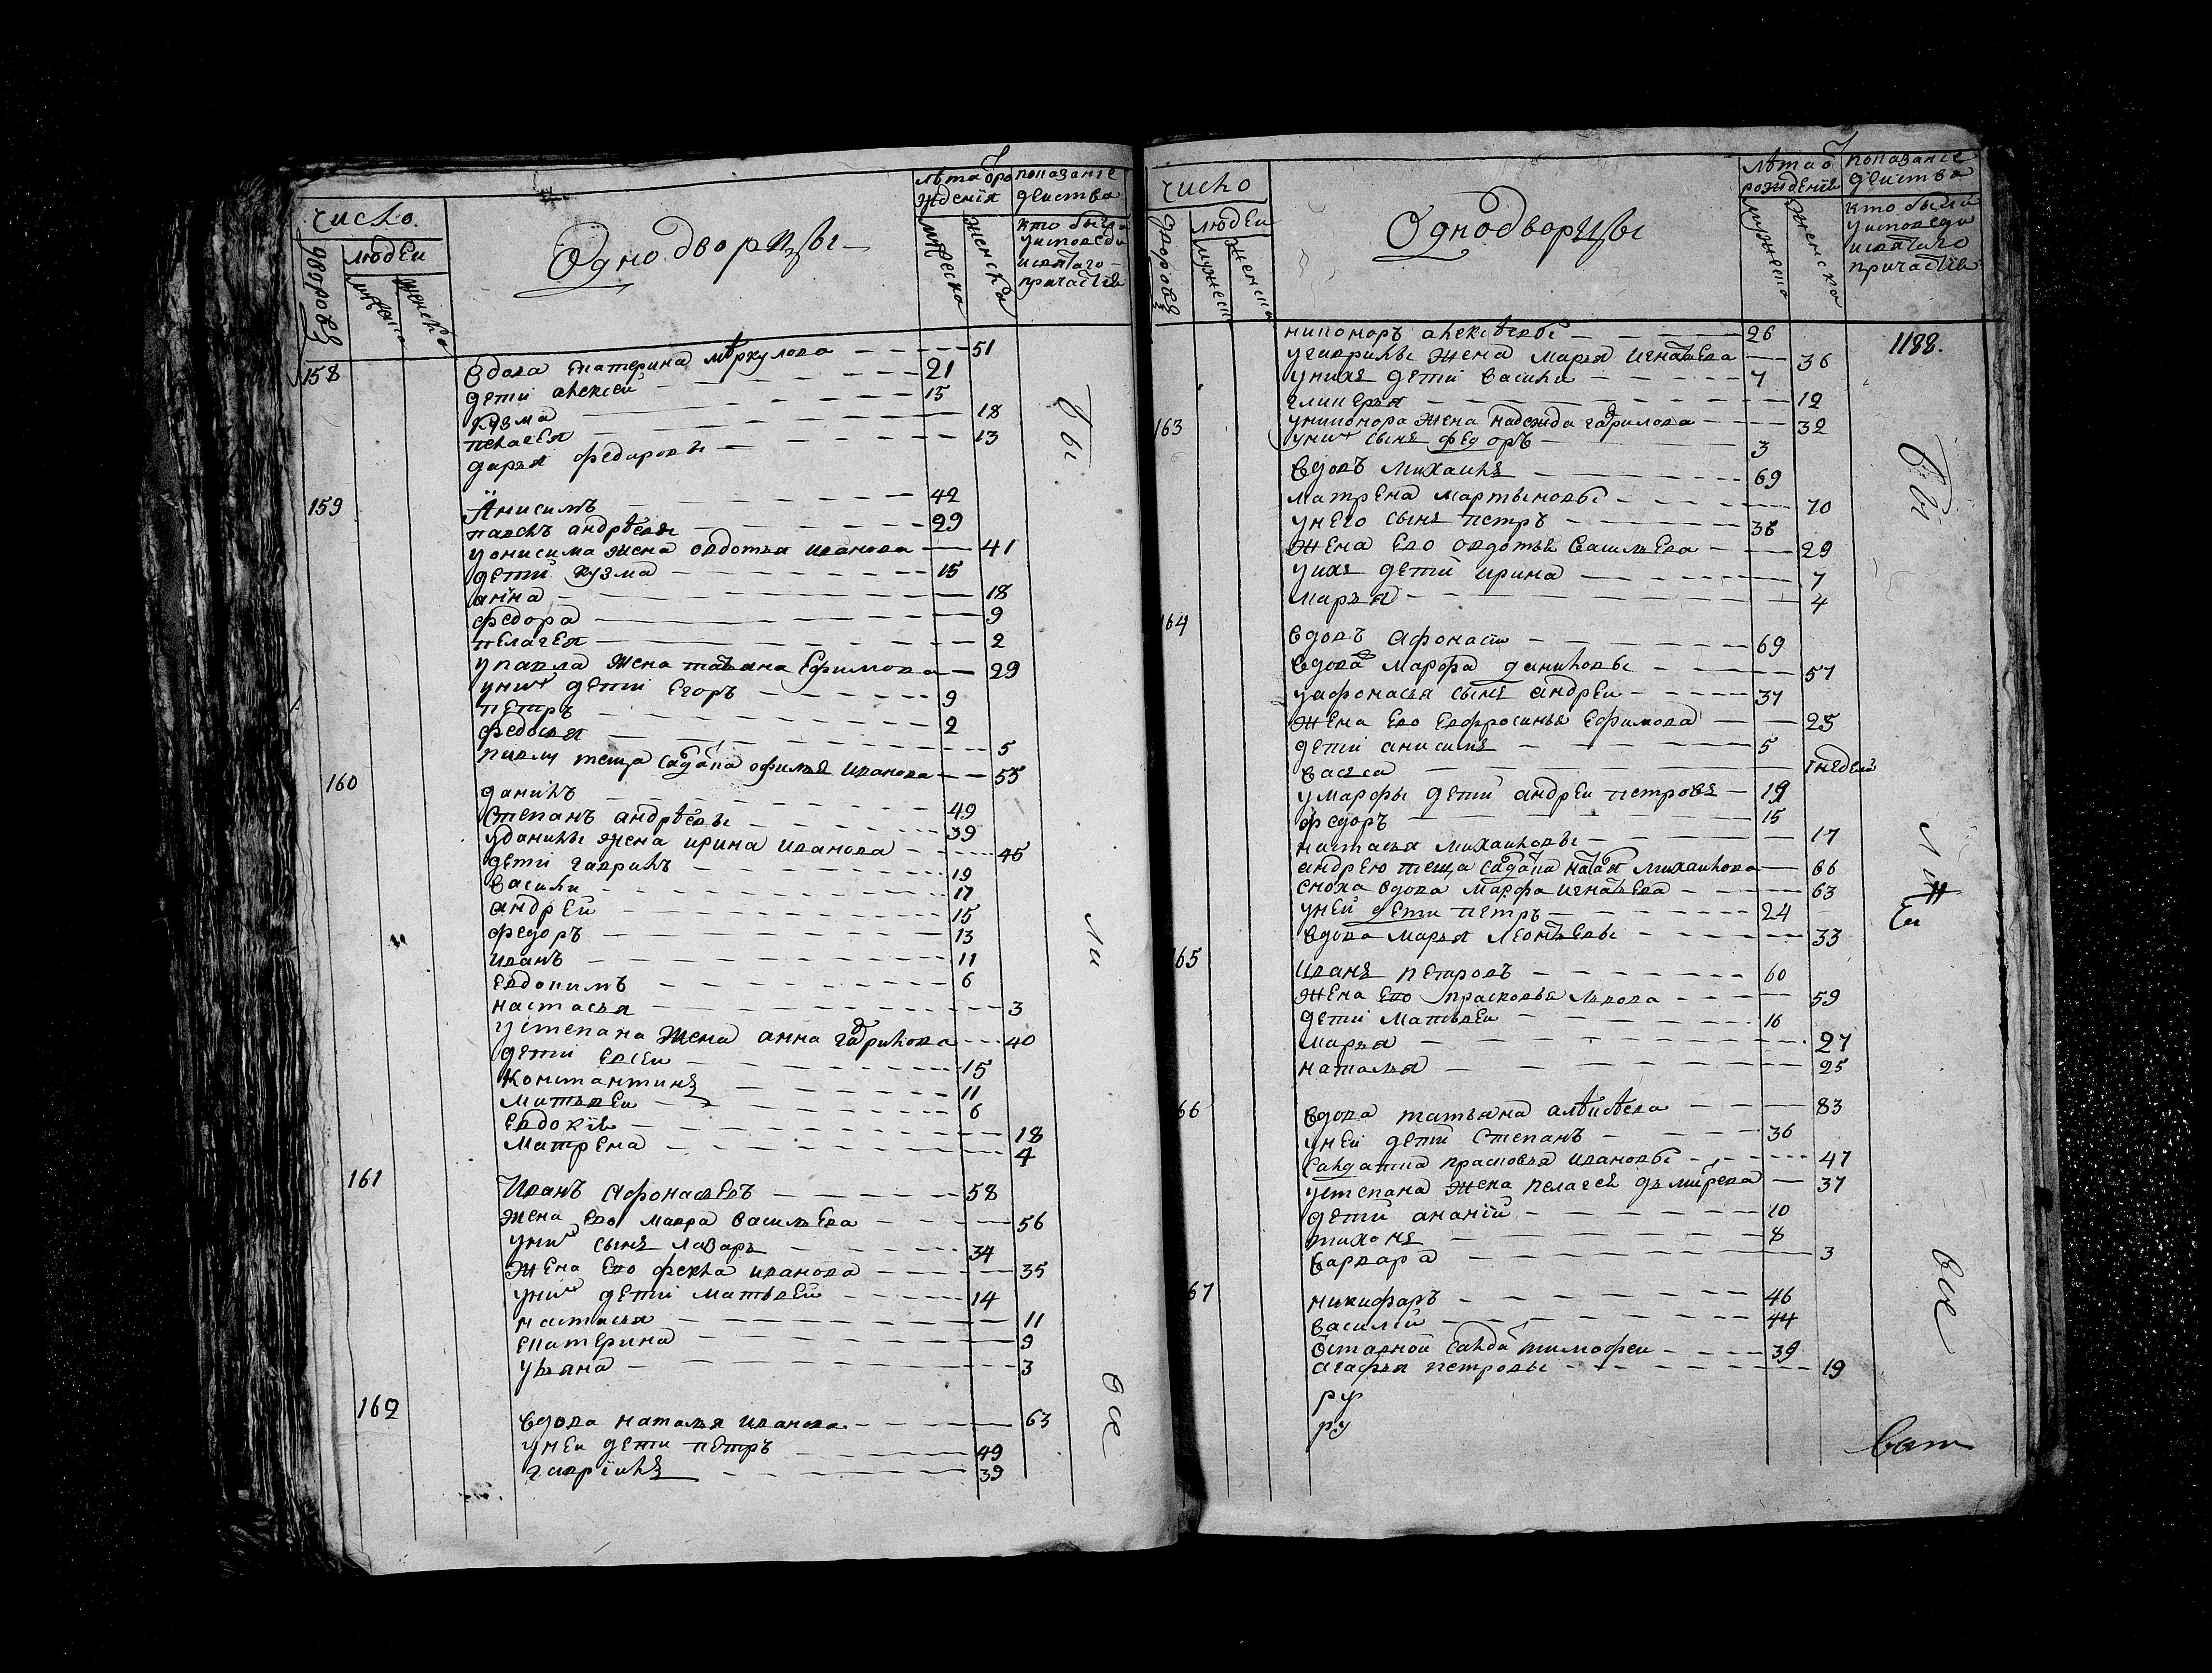 число
дворовъ
людеи
мужеска
женска
Однодворцы
лѣта отро
ждения
мужеска
женска
показание
действа
кто были
уисповеди
исвятаго
причастїя
158 вдова Екатерина меркулова 51
дети алексеи 21
Кузма 15
пелагея 18
дарья федоровы 13
159 Анисимъ 42
павелъ андрѣевы 29
уонисима жена овдотья иванова 41
дети кузма 15
анна 18
федора 9
пелагея 2
упавла жена татьяна Ефимова 29
уних дети Егоръ 9
петръ 2
федосья 5
павлу теща салдатка офимья иванова 55
160 данилъ 49
Степанъ андрѣевы 39
уданилы жена ирина иванова 45
дети гаврилъ 19
василеи 17
андреи 15
федоръ 13
иванъ 11
Евдокимъ 6
настасья 3
устепана жена анна гаврилова 40
дети евсеи 15
Константинъ 11
матвеи 6
Евдокїя 18
матрена 4
161 Иванъ Афонасьевъ 58
жена ево мавра васильева 56
уних сынъ лазарь 34
жена ево фекла иванова 35
уних дети матвеи 14
настасья 11
екатерина 9
ульяна 3
162 вдова наталья иванова 63
унеи дети петръ 49
гаврилъ 39
бы
ли
все
число
дворовъ
людеи
мужеск
женска
Однодворцы
лѣта от
рождения
мужеска
женска
показание
действа
кто были
уисповеди
исвятаго
причастїя
никоноръ алексѣевы 26
1188.
угаврилы жена марья игнатьева 36
унихъ дети василеи 7
гликерья 12
163 униконора жена надежда гаврилова 32
уних сынъ федоръ 3
вдовъ михаилъ 69
матрена мартыновы 70
унего сынъ петръ 38
жена ево овдотья васильева 29
унихъ дети ирина 7
марья 4
164 вдовъ афонасїи 69
вдова марфа даниловы 57
уафонасья сынъ андреи 37
жена ево евфросинья ефимова 25
дети анисимъ 5
васса 1 недели
умарфы дети андреи петровъ 19
федоръ 15
настасья михаиловы 17
андрею теща салдатка наталья михаилова 66
сноха вдова марфа игнатьева 63
унеи дети петръ 24
вдова марья леонтьевы 33
165 иванъ петровъ 60
жена ево прасковья львова 59
дети матвеи 16
марья 27
наталья 25
66 вдова татьяна 83
унеи дети степанъ 36
салдатка прасковья ивановы 47
устепана жена пелагея 37
дети ананїи 10
тихонъ 8
варвара 3
67 никифаръ 46
василїи 44
отставной салдат тимофеи 39
агафья петровы 19
ру
ру
бы
ли
все